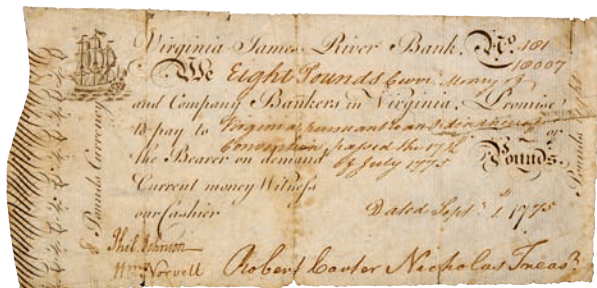 Virginia James River Bank. No. 181
18007
We Eight Pounds Curr. Money of
and Company Bankers in Virginia, Promise
to pay to Virginia, pursuant to an Ordinance of
Convention passed the 17th or
the Bearer on demand of July 1775 Pounds.
Current money Witness
our Cashier
Dated Septr. 1. 1775
Phil. Johnson
Wm. Norvell Robert Carter Nicholas Treasr.
8 Pounds Currency
Pounds